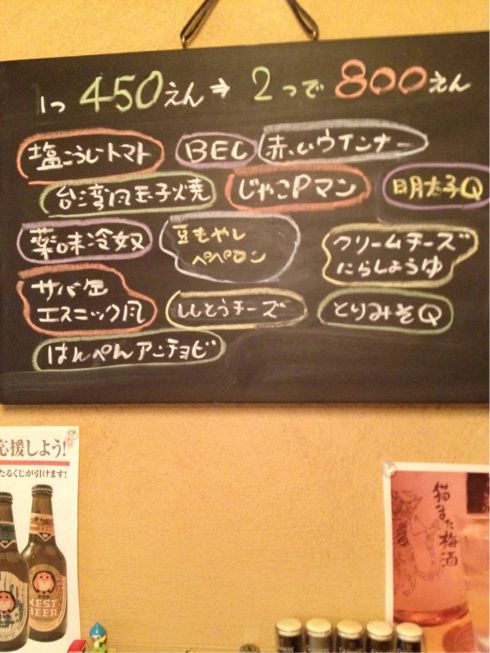 1つ 450えん→ 2つで 800えん
塩こうじトマト
BEC
赤いウインナー
台湾風玉子焼
じゃこPマン
明太子Q
薬味冷奴
豆もやし
ペペロン
クリームチーズ
にらしょうゆ
サバ缶
エスニック風
ししとうチーズ
とりみそQ
はんぺんアンチョビ
応援しよう!
たるくじが引けます!
NEST
BEER
猫また梅酒